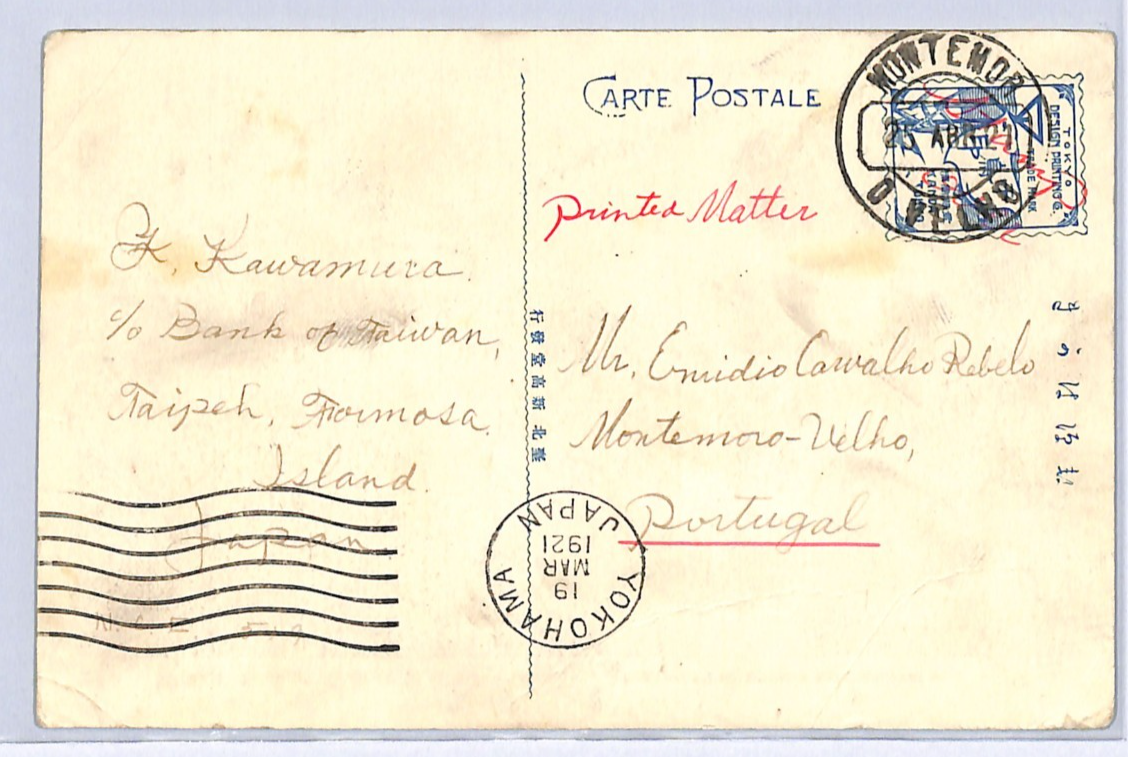 CARTE POSTALE
Printed Matter
MONTEMOR
25 ABR 21
O VELHO
TOKYO
DESIGN PRINTING
TRADE MARK
K. Kawamura
c/o Bank of Taiwan,
Taipeh, Formosa
Island.
Japan
Mr. Emidio Carvalho Rebelo
Montemoro-Velho,
Portugal
臺北新高堂發行
YOKOHAMA
19
MAR
1921
JAPAN